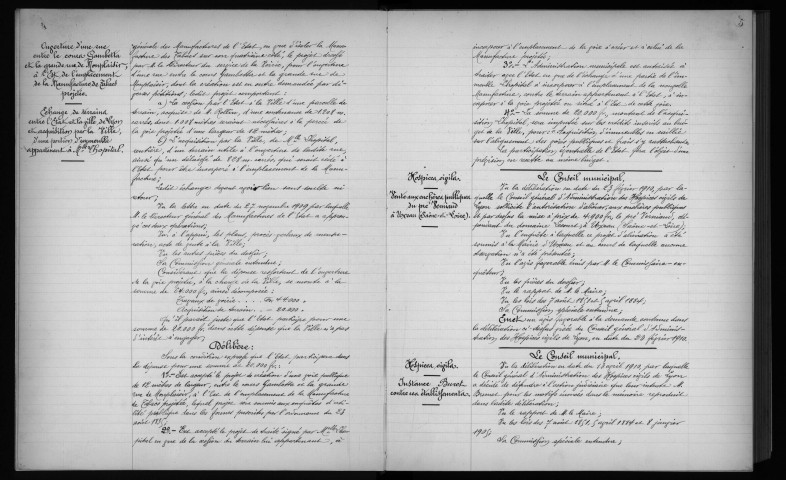 Ouverture d'une rue
entre le cours Gambetta
et la grande rue de Monplaisir,
à l'Est de l'emplacement
de la Manufacture de Tabacs
projetée.
Echange de terrains
entre l'Etat et la ville de Lyon
et acquisition par la Ville,
d'une portion d'immeuble
appartenant à Mlle Lhopital.
générale des Manufactures de l'Etat, en vue d'isoler la Manu-
facture des Tabacs sur son quatrième côté, le projet dressé
par M. le Directeur du service de la Voirie, pour l'ouverture
d'une rue entre le cours Gambetta et la grande rue de
Monplaisir, dont la création est en outre demandée par di-
verses pétitions, ledit projet comportant :
a) La cession par l'Etat à la Ville d'une parcelle de
terrain,
la voie projetée d'une largeur de 12 mètres ;
b) L'acquisition par la Ville, de Mlle Lhopital,
l'Etat pour être incorporé à l'emplacement de la Manu-
facture ;
Ledit échange devant avoir lieu sans soulte ni
retour ;
Vu la lettre en date du 27 novembre 1909, par laquelle
M. le Directeur général des Manufactures de l'Etat a approu-
vé ces deux opérations ;
Vu, à l'appui, les plans,
Vu les autres pièces du dossier ;
Sa Commission générale entendue ;
Considérant que la dépense résultant de l'ouverture
de la voie projetée, à la charge de la Ville, se monte à la
somme de
Travaux de voirie
Acquisition de terrain
Qu'il paraît juste que l'Etat participe pour une
somme de 20.000 frs dans cette dépense que la Ville n'a pas
l'intérêt à engager ;
Délibère :
Sous la condition expresse que l'Etat participera dans
la dépense pour une somme de 20.000 frs :
1º - Est accepté le projet de création d'une voie publique
de 12 mètres de largeur, entre le cours Gambetta et la grande
rue de Monplaisir, à l'Est de l'emplacement de la Manufacture
de Tabacs projetée, lequel projet sera soumis aux enquêtes d'uti-
lité publique dans les formes prescrites par l'ordonnance du 23
août 1835.
2º - Est accepté le projet de traité signé par Mlle Lho-
pital en vue de la cession du terrain lui appartenant, à
incorporer à l'emplacement de la voie à créer et à celui de la
Manufacture projetée ;
3º - L'Administration municipale est autorisée à
traiter avec l'Etat en vue de l'échange
meuble Lhopital à incorporer à l'emplacement de la nouvelle
Manufacture, contre le terrain appartenant à l'Etat, à in-
corporer à la voie projetée
4º - La somme de 20.000 frs, montant de l'acqui-
sition Lhopital, sera imputée sur le crédit inscrit au bud-
get de la Ville, pour : "Acquisitions d'immeubles
La participation éventuelle de l'Etat fera l'objet d'une
prévision en recette au même budget.
Hospices civils.
Vente aux enchères publiques
du pré Verniaud
à Uxeau (Saône-et-Loire).
Le Conseil municipal,
Vu la délibération en date du 23 février 1910, par la-
quelle le Conseil général d'Administration des Hospices civils de
Lyon sollicite l'autorisation d'aliéner, aux enchères publiques
et par-dessus la mise à prix de 4.900 frs, le pré Verniaud, dé-
pendant du domaine
Vu l'enquête à laquelle ce projet d'aliénation a été
soumis à la Mairie d'Uxeau et au cours de laquelle aucune
observation n'a été présentée ;
Vu l'avis favorable émis par M. le Commissaire-en-
quêteur ;
Vu les pièces du dossier ;
Vu le rapport de M. le Maire ;
Vu les lois des 7 août 1851 et 5 avril 1884 ;
Sa Commission spéciale entendue ;
Emet un avis favorable à la demande contenue dans
la délibération ci-dessus visée du Conseil général d'Adminis-
tration des Hospices civils de Lyon, en date du 23 février 1910.
Hospices civils.
Instance
contre ces établissements.
Le Conseil municipal,
Vu la délibération en date du avril 1910, par laquelle
le Conseil général d'Administration des Hospices civils de Lyon
a décidé de défendre à l'action judiciaire que leur intente M.
pour les motifs énoncés dans le mémoire reproduit
dans ladite délibération ;
Vu le rapport de M. le Maire ;
Vu les lois des 7 août 1851, 5 avril 1884 et 8 janvier
1905 ;
Sa Commission spéciale entendue ;